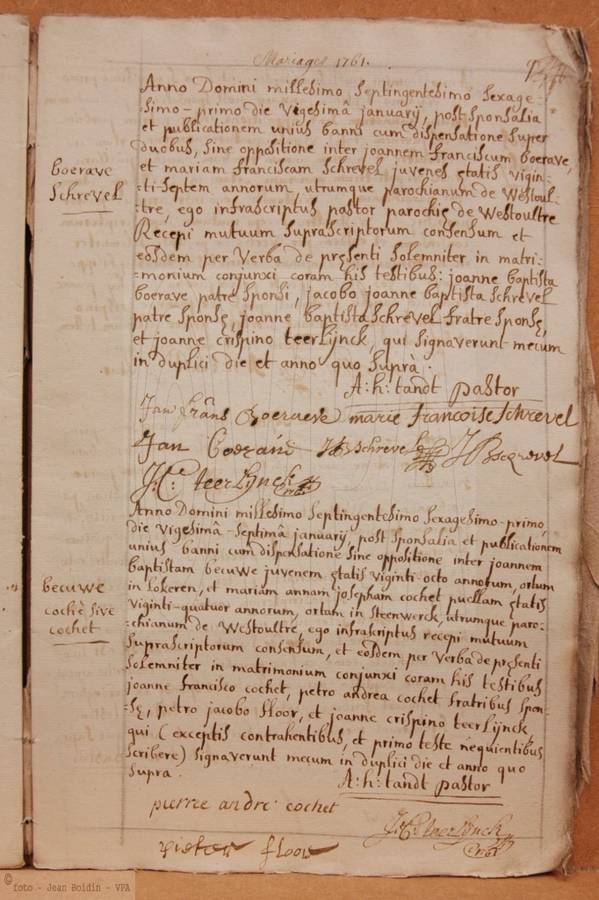 Mariages 1761.
Anno Domini millesimo Septingentesimo Sexage=
=simo-primo die Vigesimâ januarij, post Sponsalia
et publicationem unius banni cum dispensatione Super
duobus, Sine oppositione inter joannem franciscum boerave,
et mariam franciscam Schrevel juvenes ętatis vigin=
=ti-Septem annorum, utrumque parochianum de Westoul=
=tre, ego infrascriptus pastor parochię de Westoultre
Recepi mutuum Suprascriptorum consensum et
eosdem per Verba de pręsenti Solemniter in matri=
=monium conjunxi coram his testibus: joanne baptista
boerave patre Sponsi, jacobo joanne baptista Schrevel
patre Sponsę, joanne baptista Schrevel fratre Sponsę,
et joanne crispino teerLijnck, qui Signaverunt mecum
in duplici die et anno quo Suprà.
boerave
Schrevel
A:h:tandt pastor
Jan frans marie francoise Schrevel
Jan
J:C: teerLynck
Anno Domini millesimo Septingentesimo Sexagesimo-primo,
die Vigesimâ-Septimâ januarij, post Sponsalia et publicationem
unius banni cum dispensatione Sine oppositione inter joannem
baptistam becuwe juvenem ętatis viginti-octo annorum, ortum
in Lokeren, et mariam annam josepham cochet puellam ętatis
viginti-quatuor annorum, ortam in Steenwerck, utrumque paro=
=chianum de Westoultre, ego infrascriptus recepi mutuum
Suprascriptorum consensum, et eosdem per Verba de pręsenti
Solemniter in matrimonium conjunxi coram his testibus
joanne francisco cochet, petro andrea cochet fratribus Spon=
=sę, petro jacobo floor, et joanne crispino teerLynck,
qui (exceptis contrahentibus, et primo teste nequientibus
Scribere) Signaverunt mecum in duplici die et anno quo
Supra.
becuwe
cochè Sive
cochet
A:h:tandt pastor
pierre andre cochet
J:C: teerLynck
pieter floor
© foto - Jean Boidin - VPA